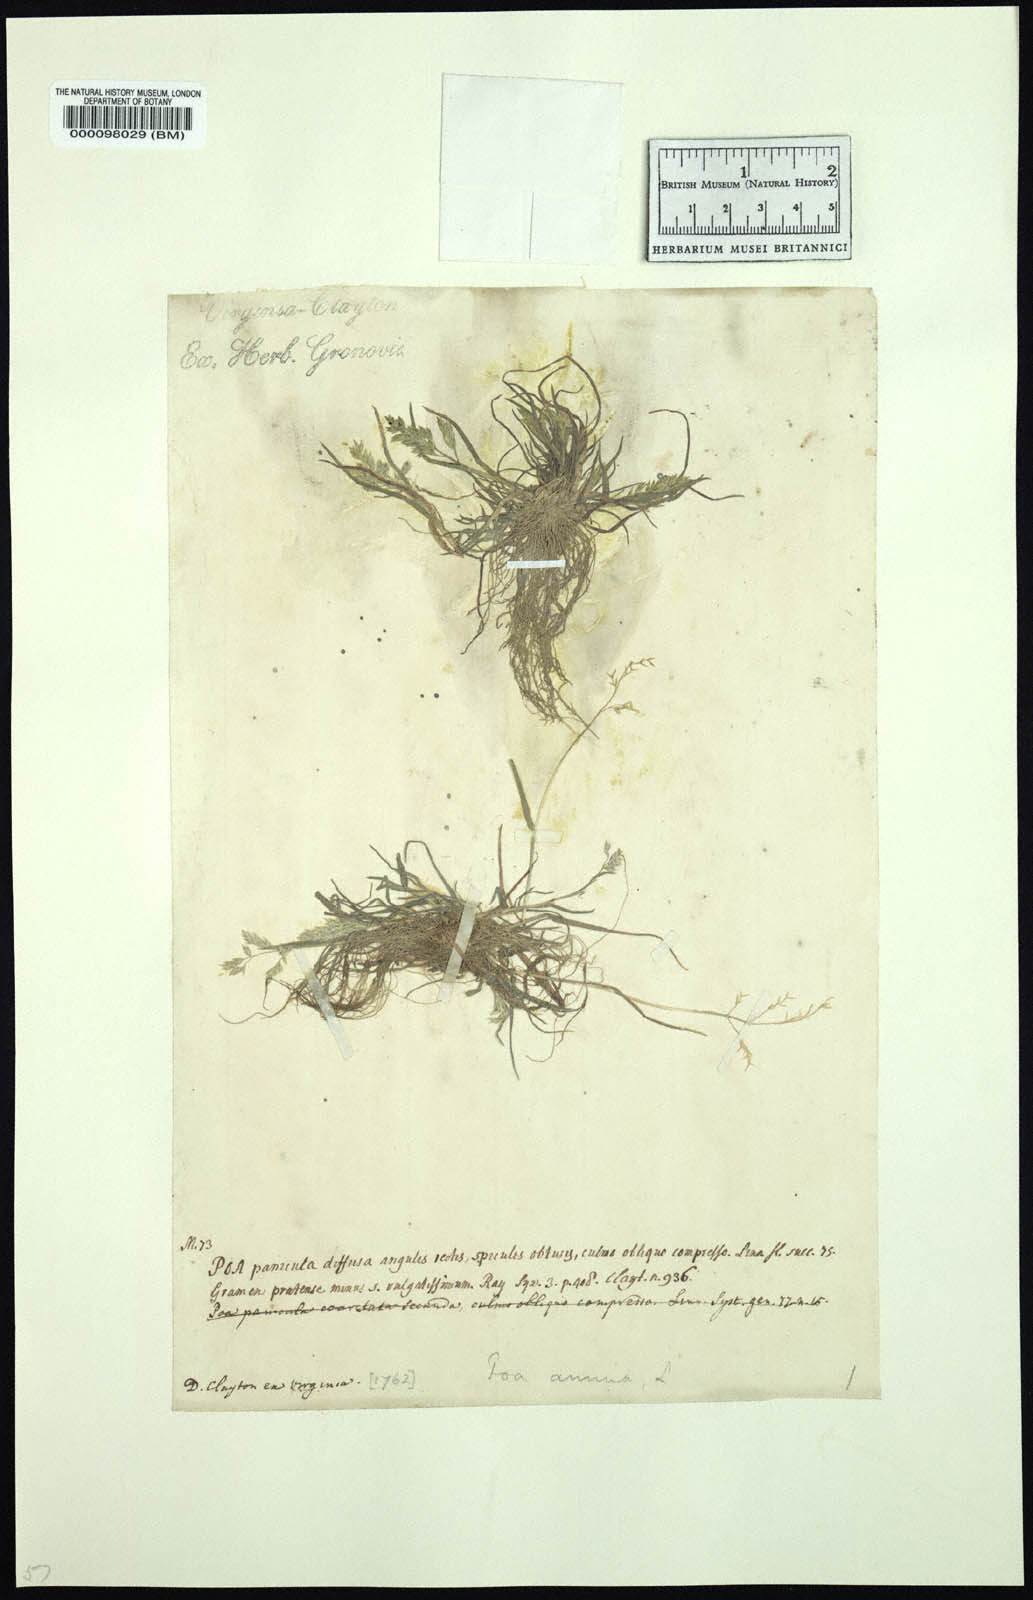 THE NATURAL HISTORY MUSEUM, LONDON
DEPARTMENT OF BOTANY
000098029 (BM)
1 2
BRITISH MUSEUM (NATURAL HISTORY)
1 2 3 4 5
HERBARIUM MUSEI BRITANNICI
Virginia - Clayton
Ex. Herb. Gronovii
M. 73
POA panicula diffusa angulis rectis, spiculis obtusis, culmo obliquo compresso. Linn fl. suec. 75.
Gramen pratense minus s. vulgatissimum. Ray Syn. 3. p. 408. Clayt. n. 936.
Poa panicula coarctata secunda, culmo obliquo compresso. Linn. Syst. gen. 77. n. 15.
D. Clayton ex Virginia. [1762]
Poa annua, L
1
57